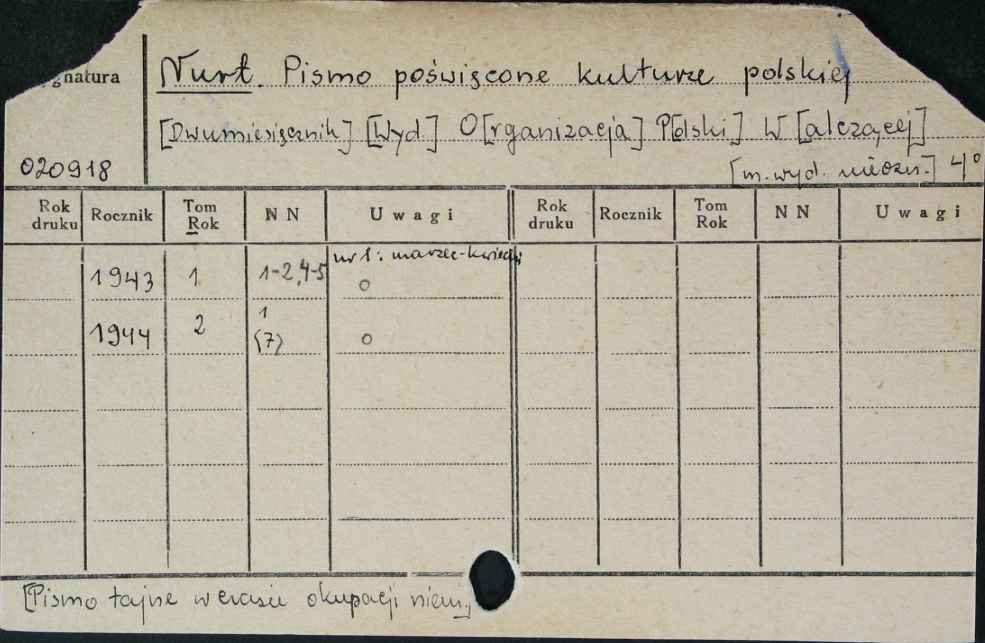 gnatura
Nurt. Pismo poświęcone kulturze polskiej
[Dwumiesięcznik] [Wyd.] O[rganizacja] P[olski] W[alczącej]
020918
[m. wyd. nieozn.] 4°
Rok druku Rocznik Tom Rok NN Uwagi Rok druku Rocznik Tom Rok NN Uwagi
nr 1: marzec-kwiecień
1943 1 1-2,4-5 o
1944 2 1 (7) o
[Pismo tajne w czasie okupacji niem.]